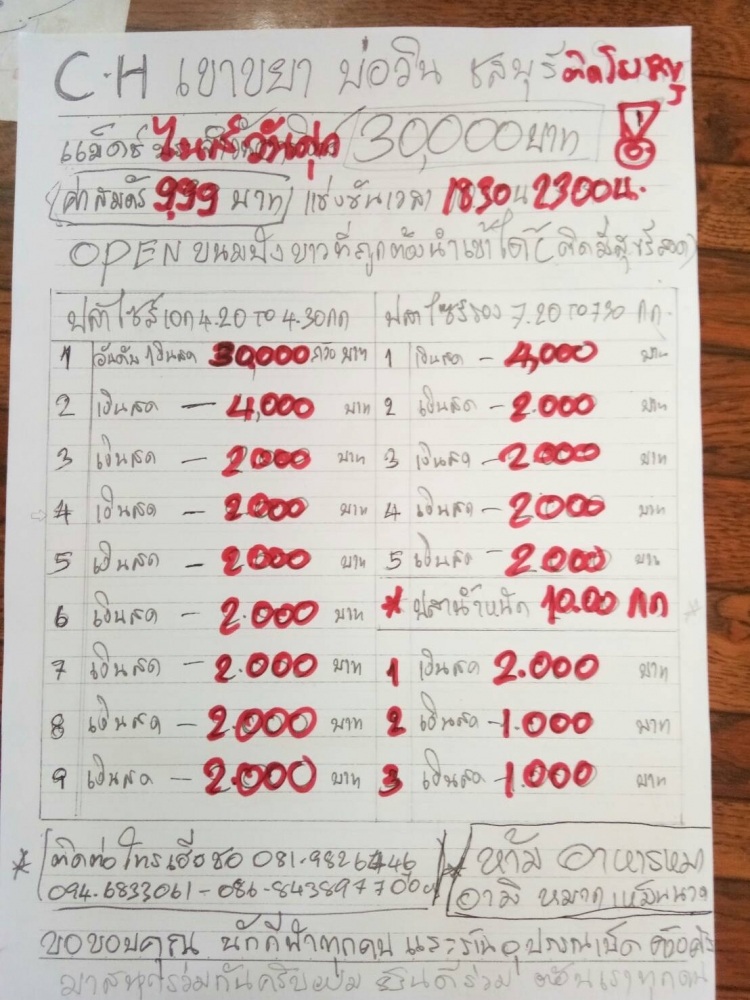 C.H เขาขยา บ่อวิน ชลบุรี ติดโรบินสัน
แม็ดช์ ไนท์วันพุธ 30,000 บาท
ค่าสมัคร 999 บาท แช่งขันเวลา 1830 น 2300น.
OPEN ขนมปังขาวที่ถูกต้องนำเข้าได้
ปลาไซส์เอก 4.20 TO 4.30 กก ปลาไซส์รอง 7.20 TO 730 กก.
1 อันดับ 1 เงินสด 30,000 บาท 1 เงินสด - 4,000 บาท
2 เงินสด - 4,000 บาท 2 เงินสด - 2.000 บาท
3 เงินสด - 2000 บาท 3 เงินสด - 2000 บาท
4 เงินสด - 2000 บาท 4 เงินสด - 2000 บาท
5 เงินสด - 2000 บาท 5 เงินสด - 2000 บาท
6 เงินสด - 2.000 บาท * ปลาน้ำหนัก 10.00 กก
7 เงินสด - 2.000 บาท 1 เงินสด 2.000 บาท
8 เงินสด - 2.000 บาท 2 เงินสด - 1.000 บาท
9 เงินสด - 2.000 บาท 3 เงินสด - 1.000 บาท
* ติดต่อ โทร เฮียชอ 081-9826446
094.6833061 - 086-8438977
* ห้าม อาหารหมา
อามิ หมาก เหม็น
ขอขอบคุณ นักกีฬาทุกคน และร้านอุปกรณ์เบ็ด